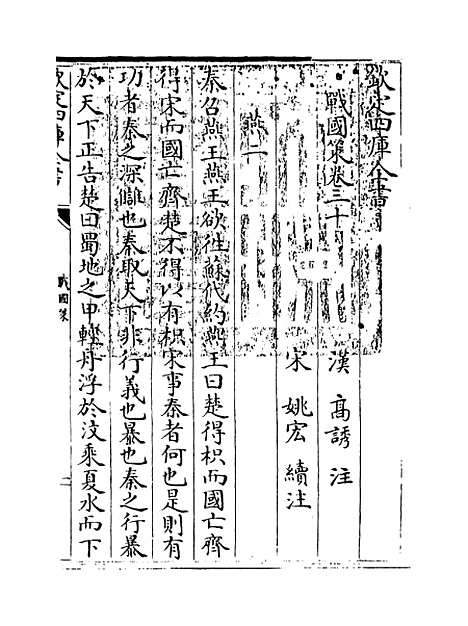 欽定四庫全書
戰國策卷三十
漢 高誘 注
宋 姚宏 續注
燕二
秦召燕王燕王欲往蘇代約燕王曰楚得枳而國亡齊
得宋而國亡齊楚不得以有枳宋事秦者何也是則有
功者秦之深讎也秦取天下非行義也暴也秦之行暴
於天下正告楚曰蜀地之甲輕舟浮於汶乘夏水而下
欽定四庫全書
戰國策